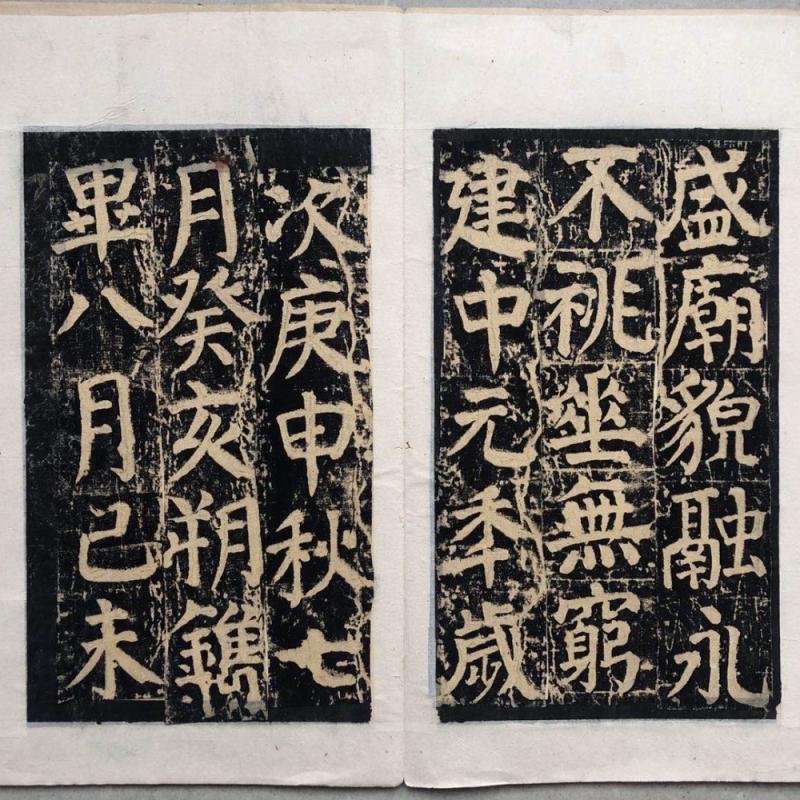 盛廟貌融永
不祧垂無窮
建中元年歲
次庚申秋七
月癸亥朔鐫
畢八月己未